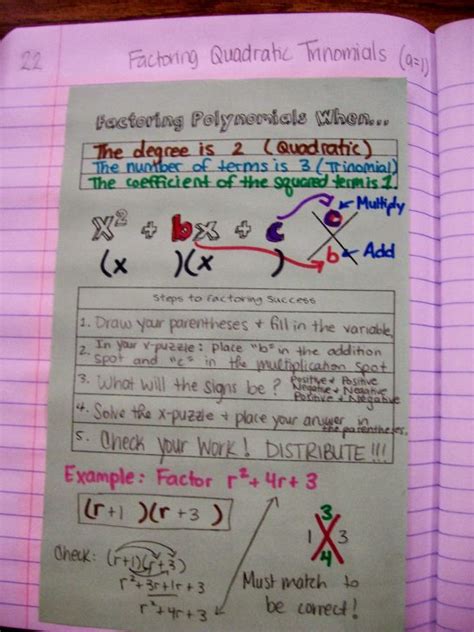 22
Factoring Quadratic Trinomials (a=1)
Factoring Polynomials When...
The degree is 2 (Quadratic)
The number of terms is 3 (Trinomial)
The coefficient of the squared term is 1.
x² + bx + c
c Multiply
b Add
(x )(x )
Steps to Factoring Success
1. Draw your parentheses + fill in the variable.
2. In your x-puzzle: place "b" in the addition
spot and "c" in the multiplication spot
3. What will the signs be? Positive + Positive
Negative + Negative
Positive + Negative
4. Solve the x-puzzle + place your answer in
the parentheses.
5. Check your Work! DISTRIBUTE!!!
Example: Factor r²+4r+3
(r+1)(r+3)
3
1 3
4
Check: (r+1)(r+3)
r²+3r+1r+3
r²+4r+3
Must match to
be correct!